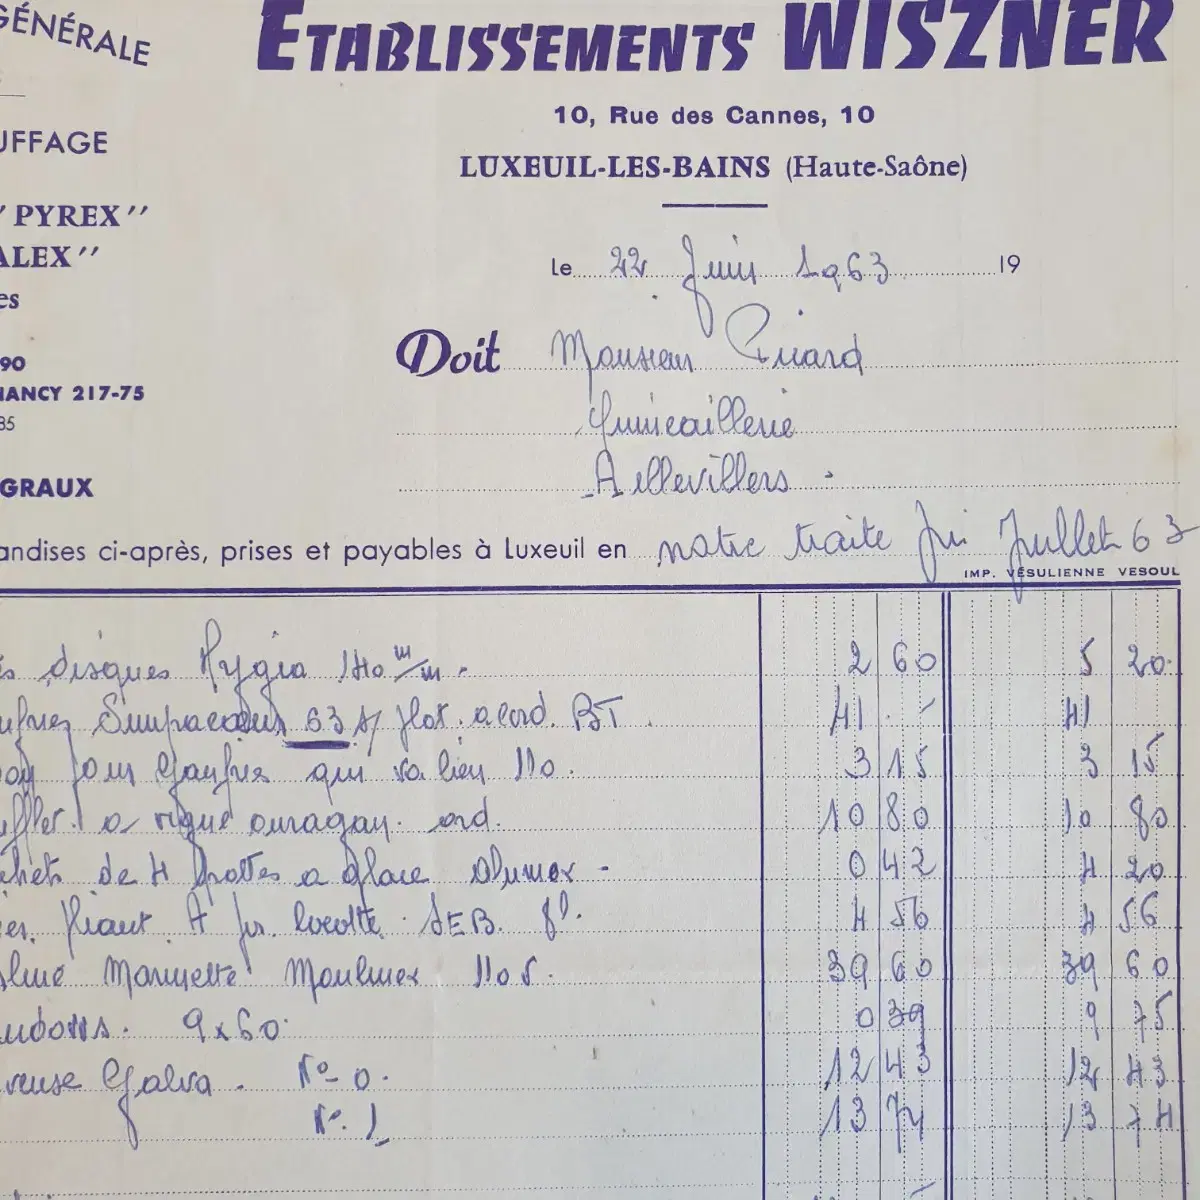 GÉNÉRALE
ETABLISSEMENTS WISZNER
10, Rue des Cannes, 10
UFFAGE
LUXEUIL-LES-BAINS (Haute-Saône)
" PYREX "
ALEX "
Le 22 Juin 1963 19
es
Doit Monsieur
90
NANCY 217-75
Quincaillerie
35
Aillevillers
GRAUX
andises ci-après, prises et payables à Luxeuil en notre traite fin Juillet 63
IMP. VÉSULIENNE VESOUL
disques Hygia 140 m/m. 2 60 5 20
63 BT 41 - 41
pour Gaufres qui va bien 110. 3 15 3 15
ouragan. ord. 10 80 10 80
de 4 a glace 0 42 4 20
A pr. Cocotte SEB. 8l. 4 56 4 56
Moulinex 1105. 39 60 39 60
9x60. 0 39 9 75
Galva. N° 0. 12 43 12 43
N° 1 13 74 13 74